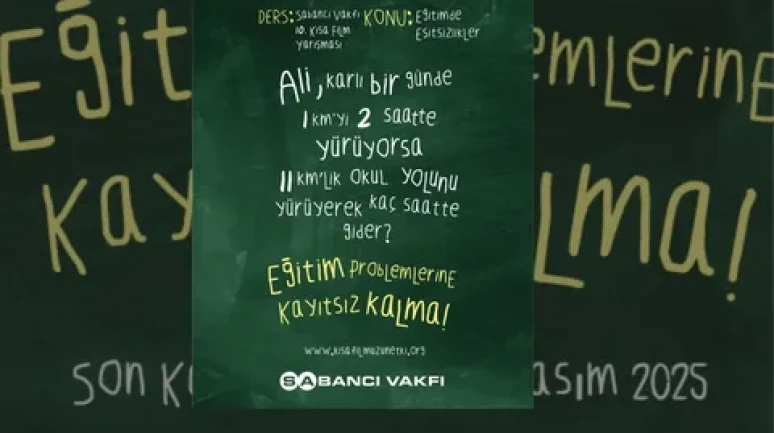 DERS: Sabancı Vakfı 10. Kısa Film Yarışması
KONU: Eğitimde Eşitsizlikler
Ali, karlı bir günde
1 km'yi 2 saatte
yürüyorsa
11 km'lik okul yolunu
yürüyerek kaç saatte
gider?
Eğitim problemlerine
kayıtsız kalma!
www.kisafilmuzunetki.org
SABANCI VAKFI
Eğit
emlerine
kay
alma!
son k
asım 2025